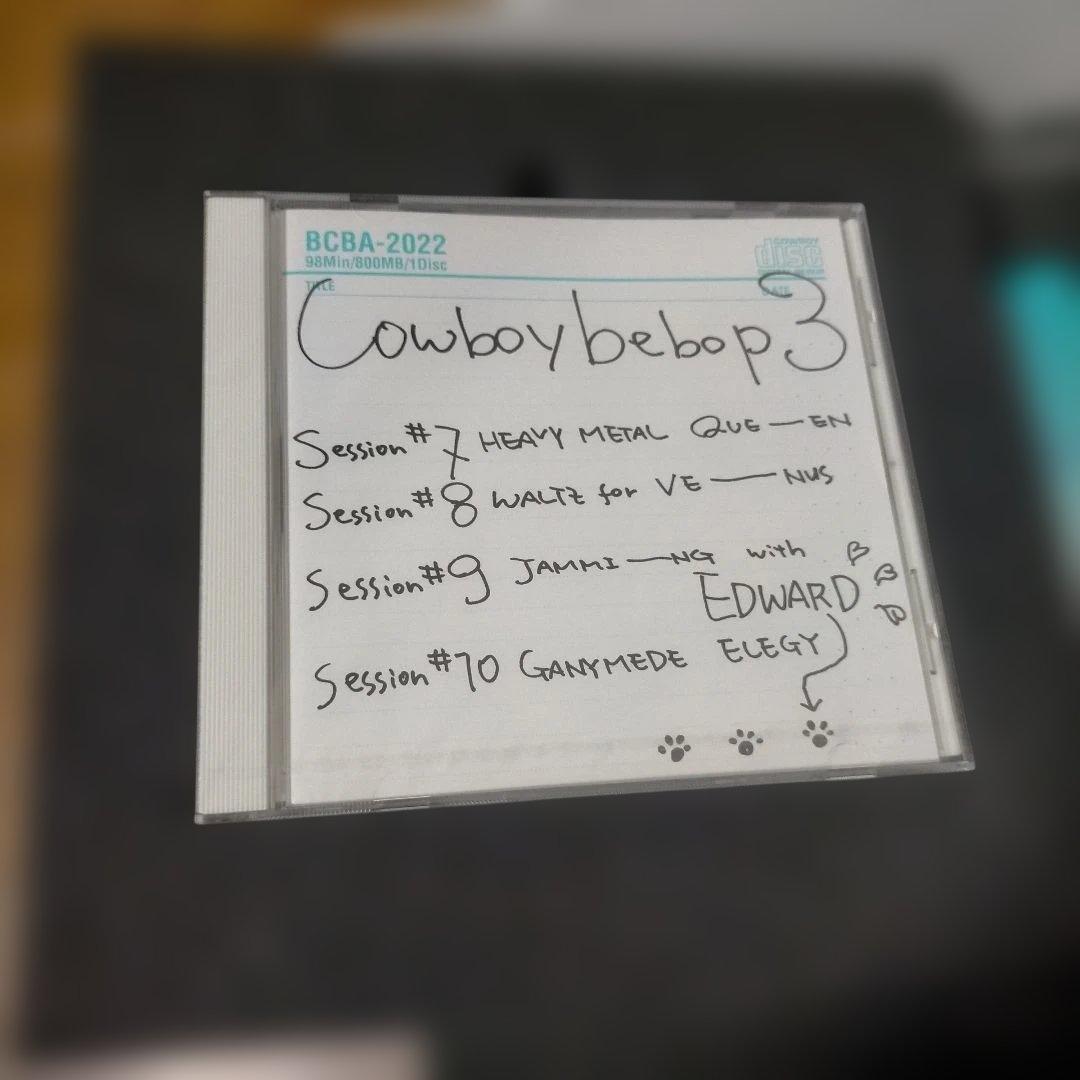 BCBA-2022
98Min/800MB/1Disc
COWBOY
disc
TITLE
DATE
Cowboybebop3
Session#7 HEAVY METAL QUE—EN
Session#8 WALTZ for VE—NUS
Session#9 JAMMI—NG with
EDWARD
Session#10 GANYMEDE ELEGY